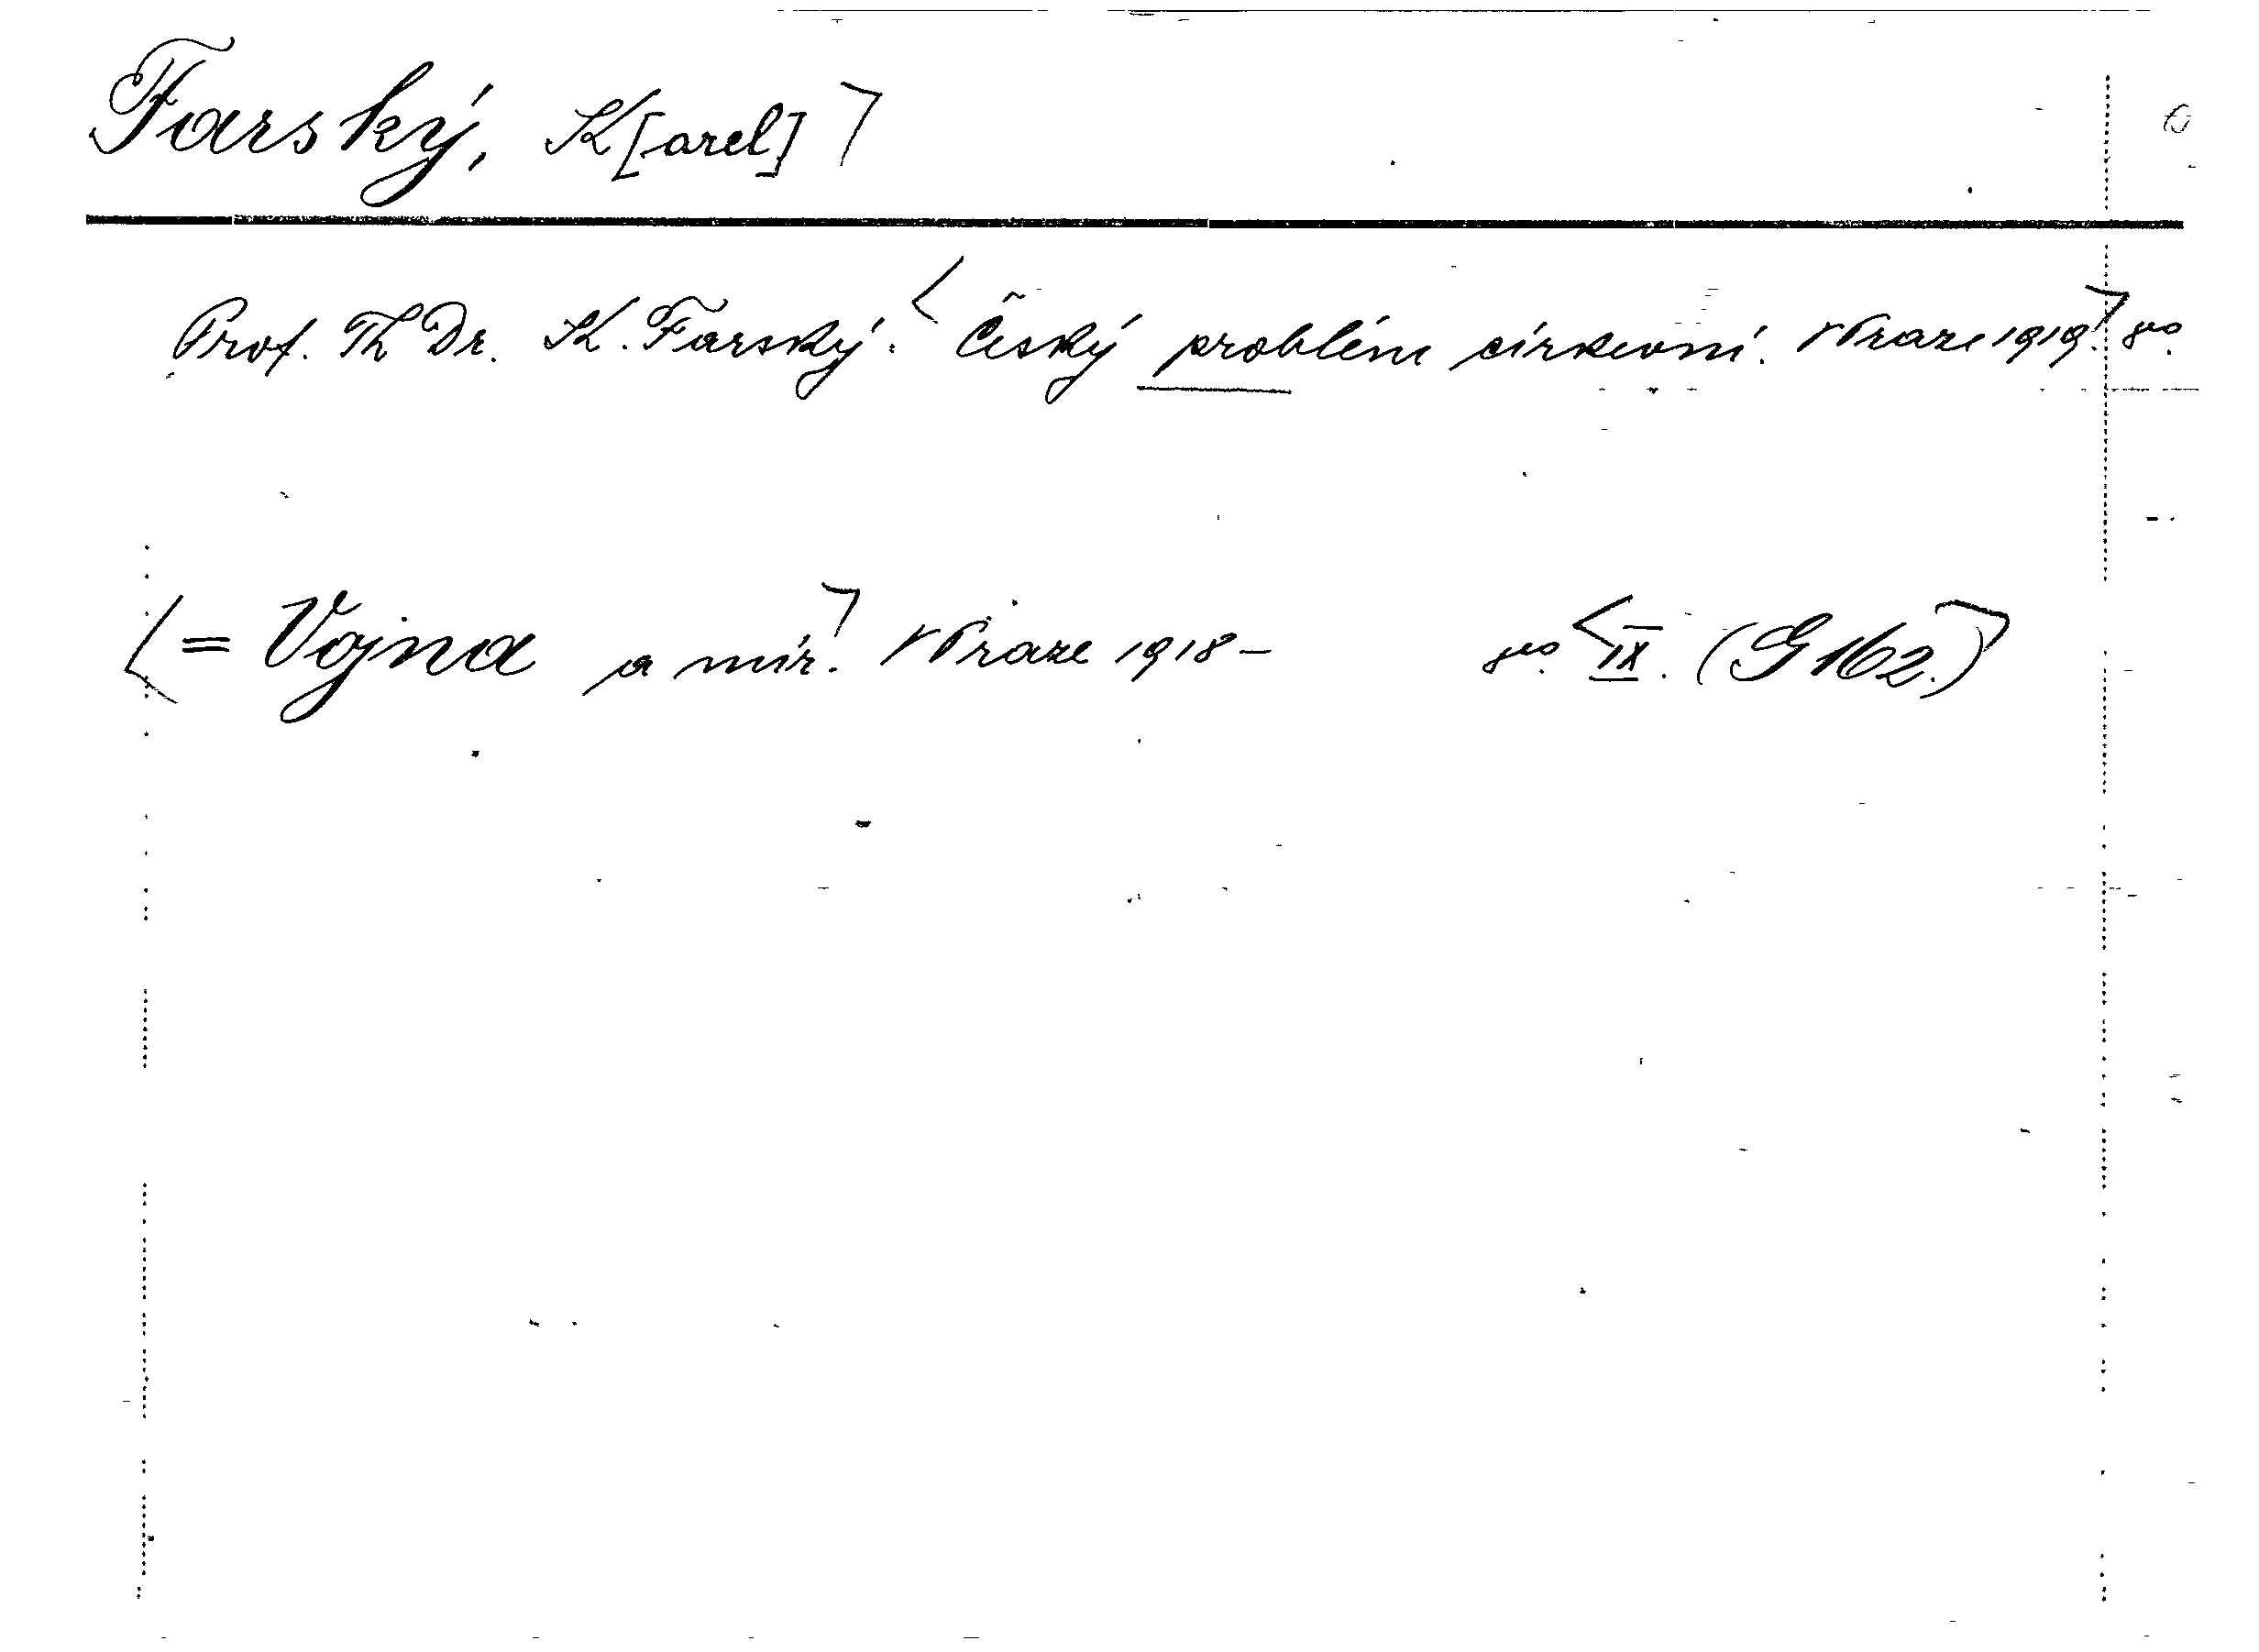 Farský, K[arel]
Prof. Th Dr. K. Farský: Český problém církevní. V Praze 1919. 8vo.
= Vojna a mír. V Praze 1918– 8vo. IX. (G 162.)